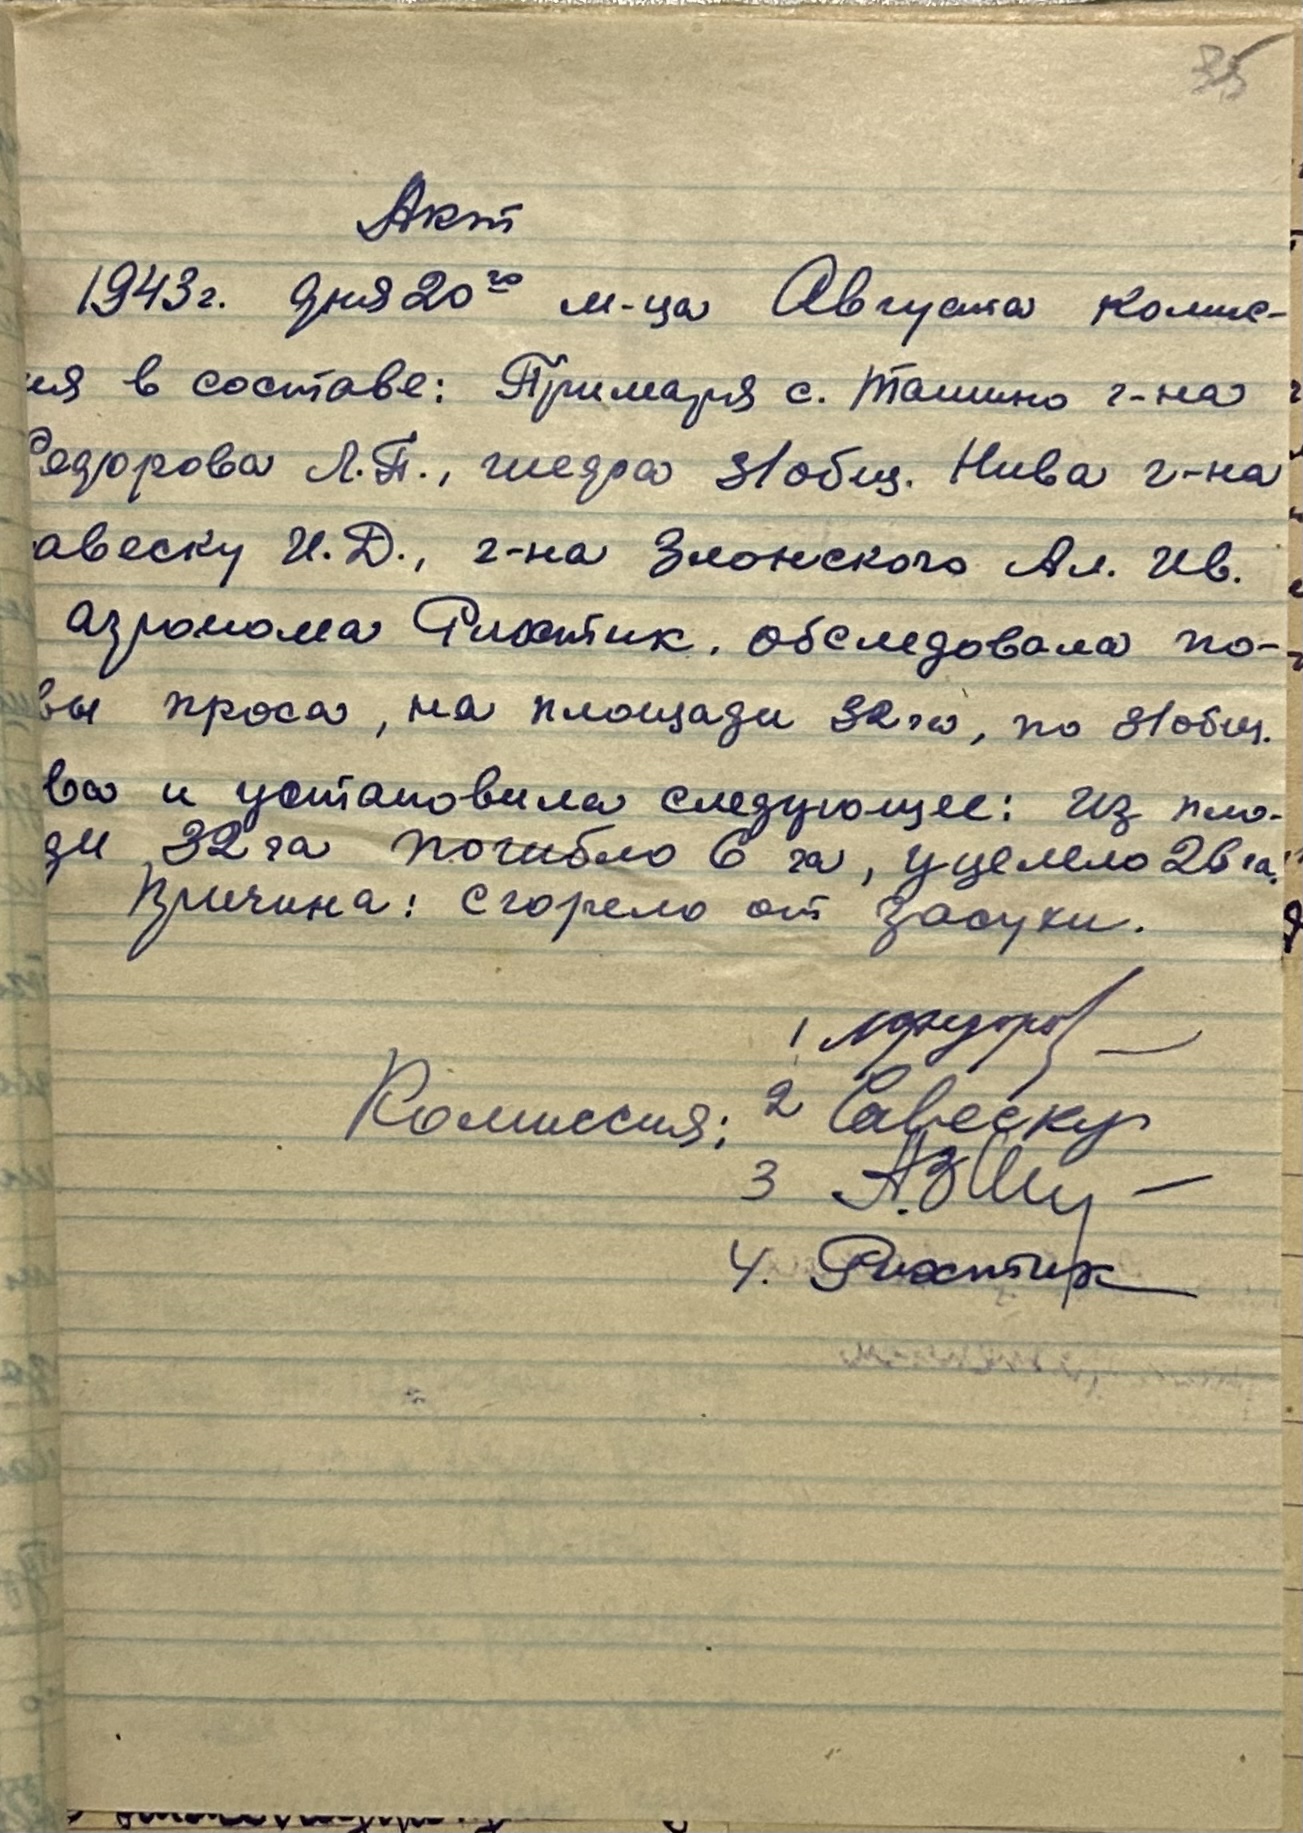 35
Акт
1943г. дня 20го м-ца Августа комис-
ия в составе: Примаря с. Ташино г-на
Федорова Л.П., шефа с/общ. Нива г-на
авеску И.Д., г-на Злонского Ал. Ив.
агронома Рихтик. обследовала по-
вы проса, на площади 32 га, по с/общ.
ва и установила следующее: из пло-
ди 32 га погибло 6 га, уцелело 26 га.
Причина: сгорело от засухи.
1 Лфедоров
Комиссия: 2 Савеску
3
4. Рихтик